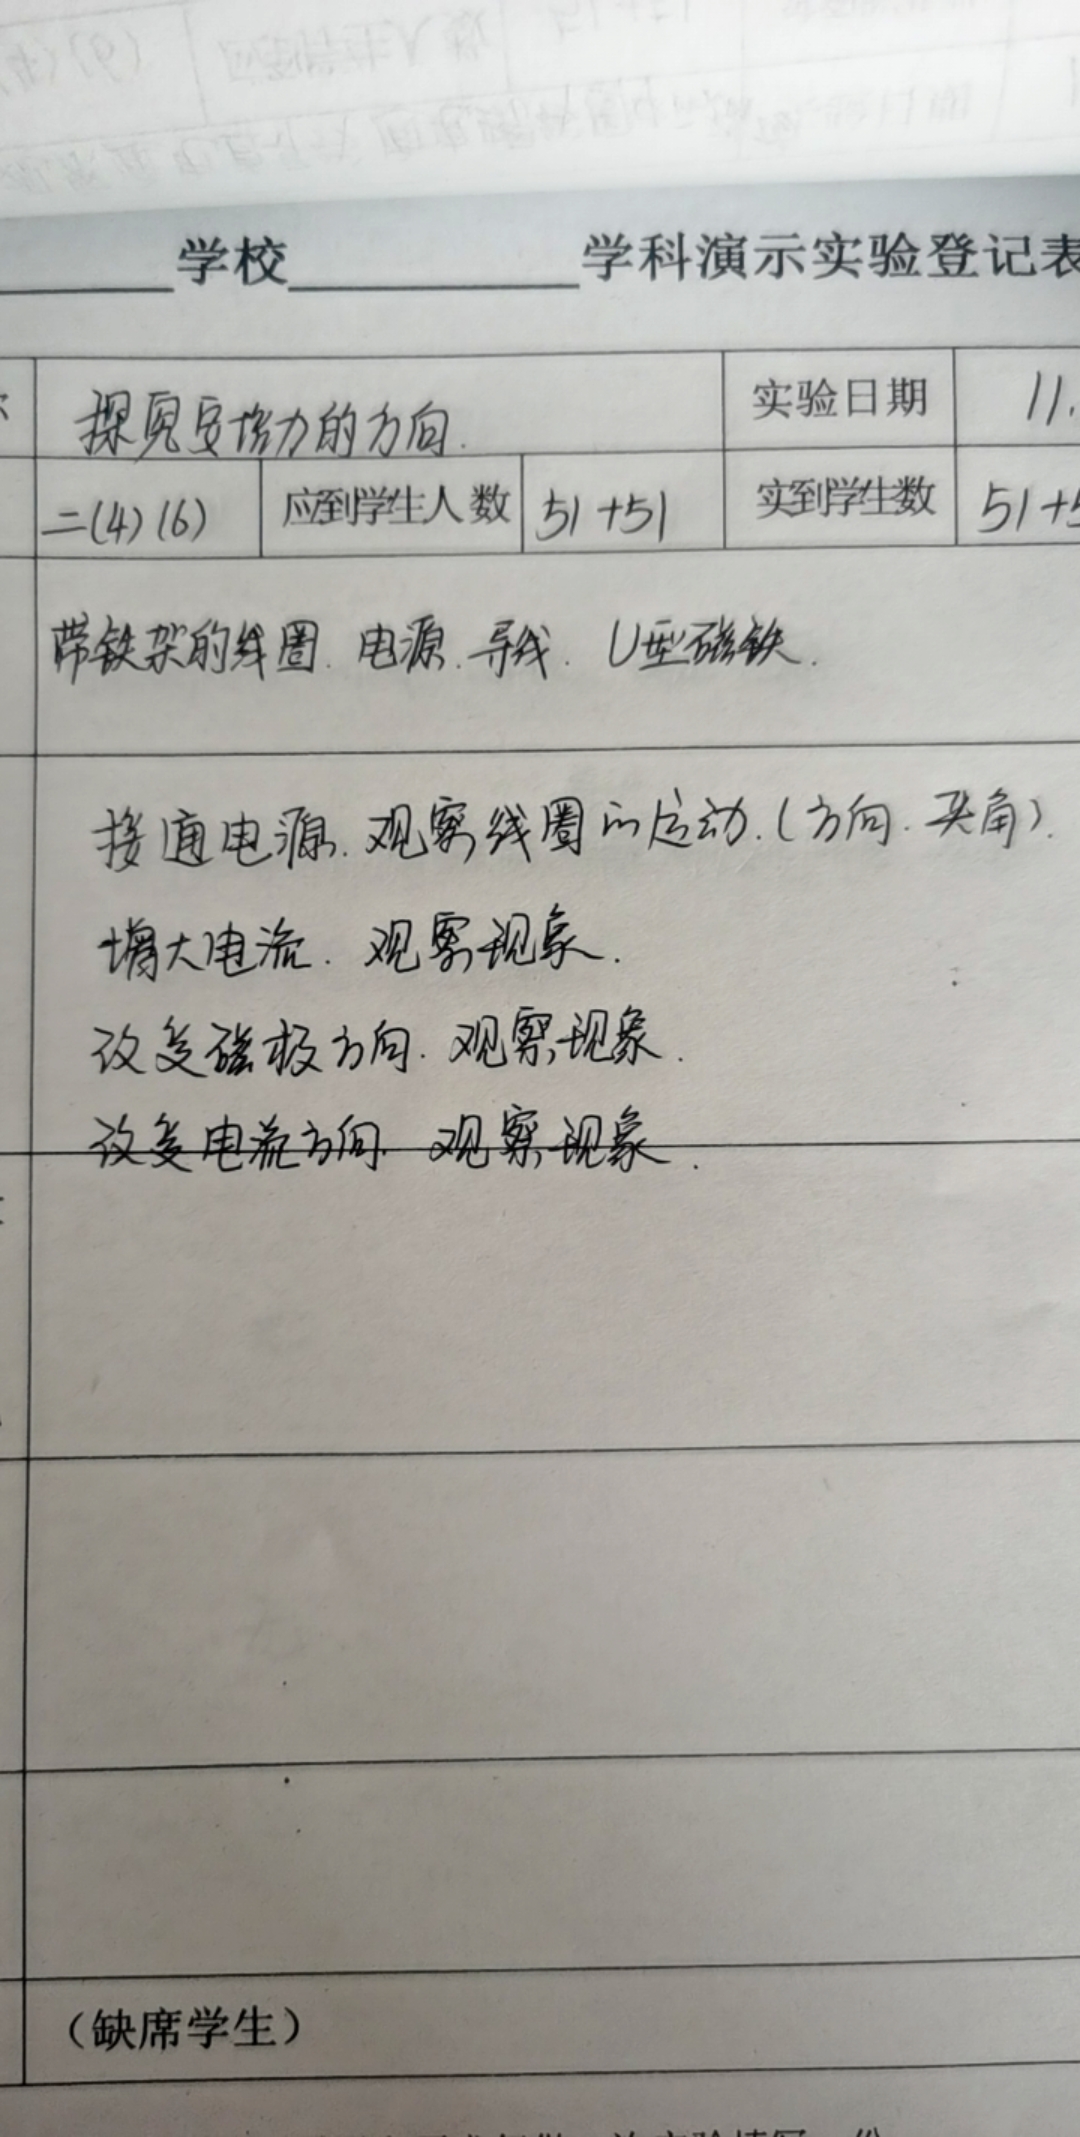 学校 学科演示实验登记表
探究安培力的方向. 实验日期 11.
二(4)(6) 应到学生人数 51+51 实到学生数 51+5
带铁架的线圈. 电源. 导线. U型磁铁.
接通电源. 观察线圈的运动.(方向. 夹角).
增大电流. 观察现象.
改变磁极方向. 观察现象.
改变电流方向. 观察现象.
(缺席学生)